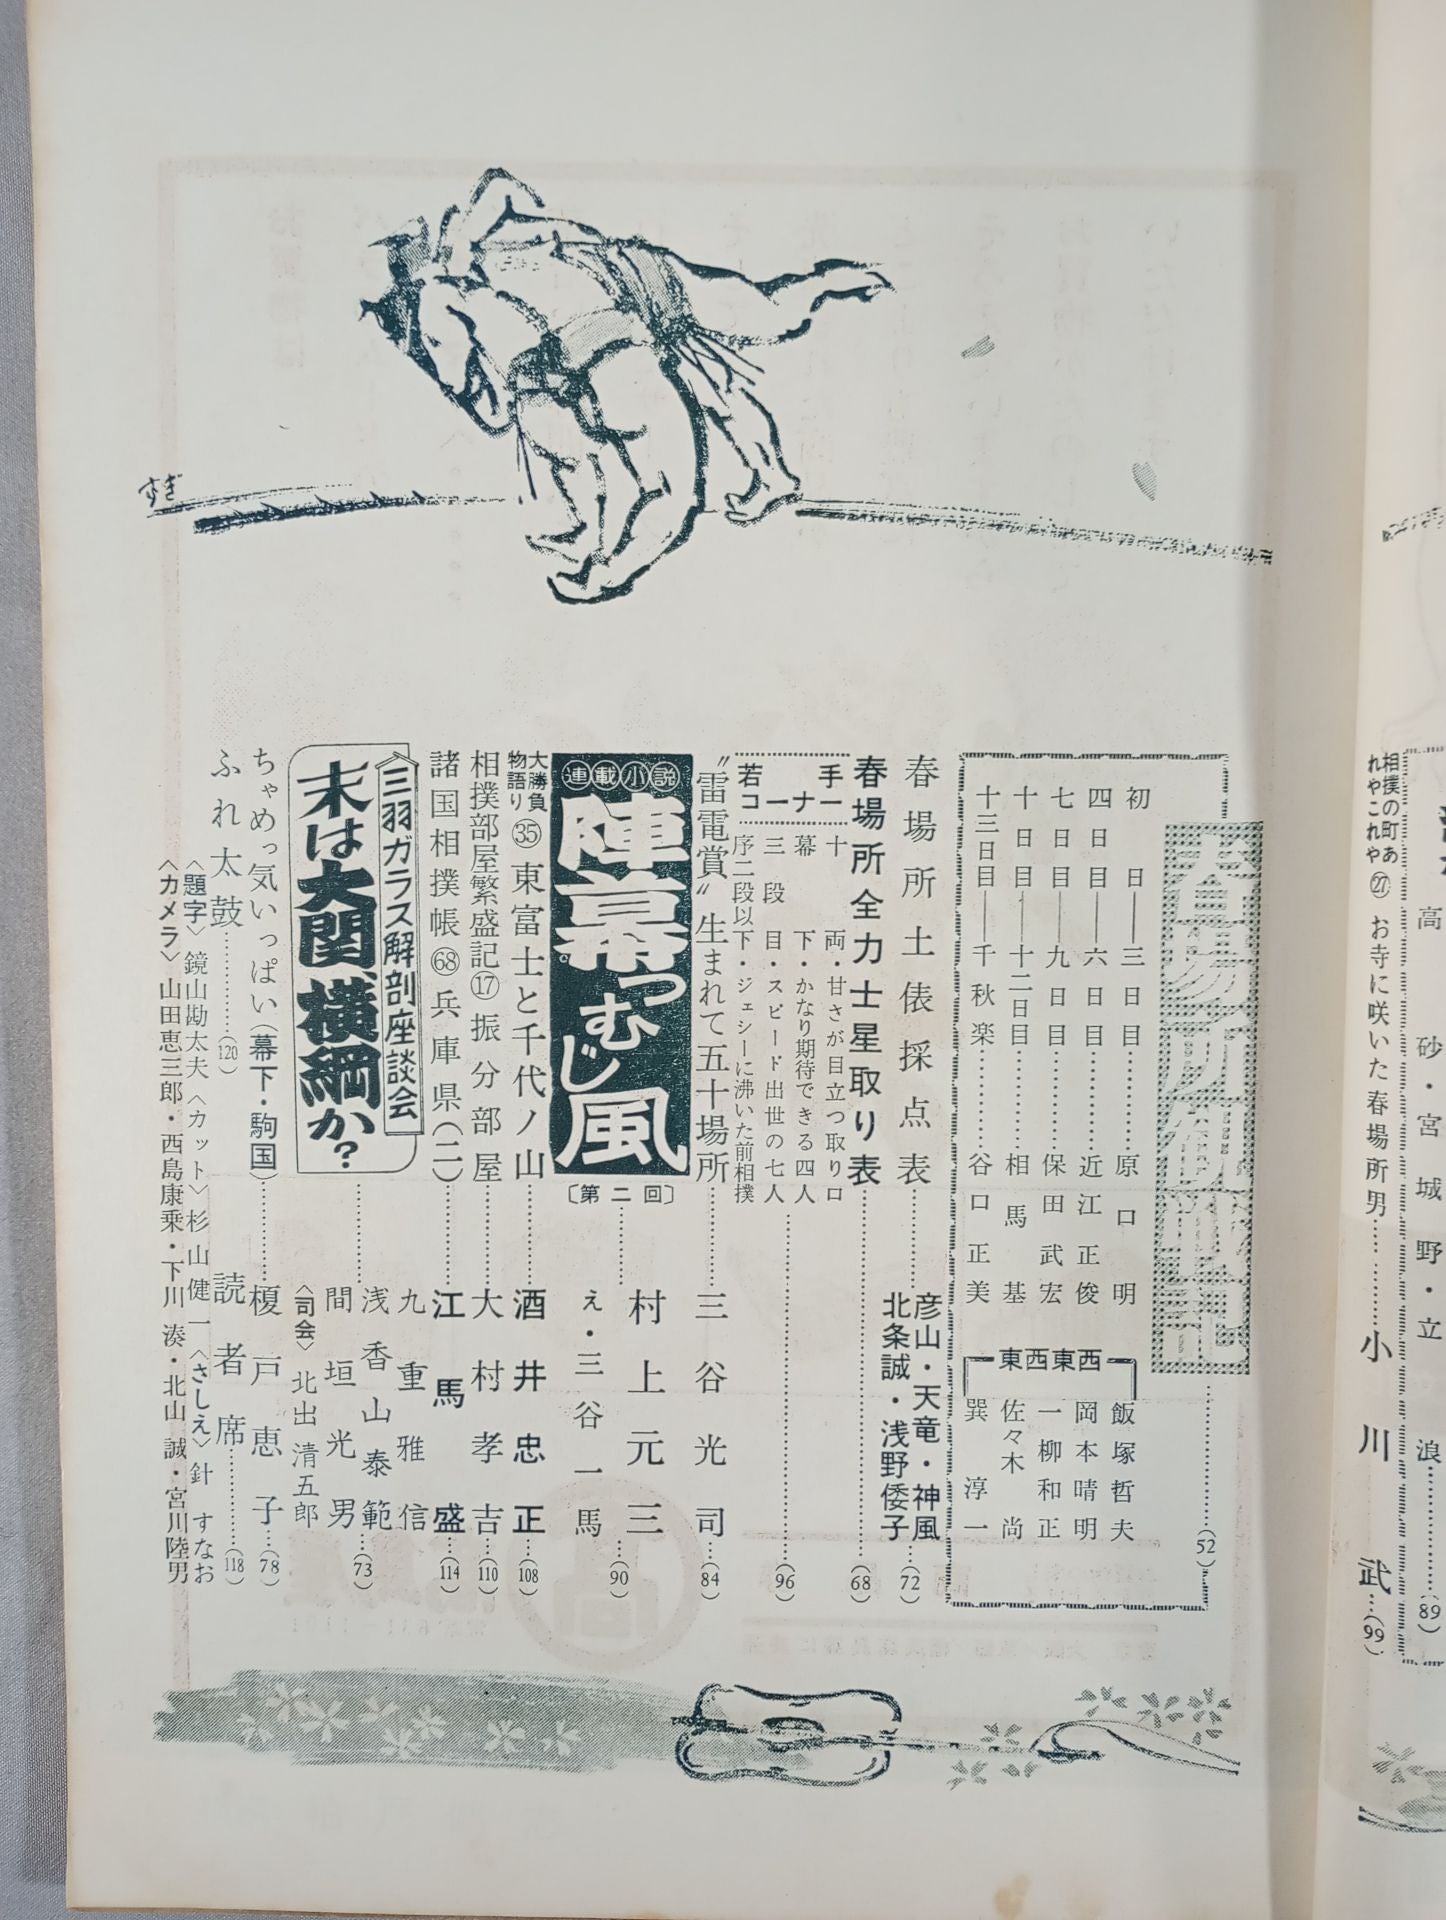 相撲の町あれやこれや㉗ お寺に咲いた春場所男……………小川武…(99)
春場所観戦記……………(52)
初日――三日目……………原口明
四日目――六日目……………近江正俊
七日目――九日目……………保田武宏
十日目――十二日目……………相馬基
十三日目――千秋楽……………谷口正美
東西東西
飯塚哲夫
岡本晴明
一柳和正
佐々木尚
巽淳一
春場所土俵採点表……………彦山・天竜・神風 北条誠・浅野倭子…(72)
春場所全力士星取り表……………(68)
若手コーナー
十両・甘さが目立つ取り口
幕下・かなり期待できる四人
三段目・スピード出世の七人
序二段以下・ジェシーに沸いた前相撲
……………(96)
〝雷電賞〟生まれて五十場所……………三谷光司…(84)
連載小説
陣幕つむじ風
〔第二回〕……………村上元三…(90)
え・三谷一馬
大勝負物語り㉟ 東富士と千代ノ山……………酒井忠正…(108)
相撲部屋繁盛記⑰ 振分部屋……………大村孝吉…(110)
諸国相撲帳㊳ 兵庫県(二)……………江馬盛…(114)
三羽ガラス解剖座談会
末は大関、横綱か?
九重雅信
浅香山泰範
間垣光男
……………(73)
〈司会〉北出清五郎
ちゃめっ気いっぱい(幕下・駒国)……………榎戸恵子…(78)
ふれ太鼓……………(120)
読者席……………(118)
〈題字〉鏡山勘太夫〈カット〉杉山健一〈さしえ〉針すなお
〈カメラ〉山田恵三郎・西島康乗・下川湊・北山誠・宮川陸男
すぎ